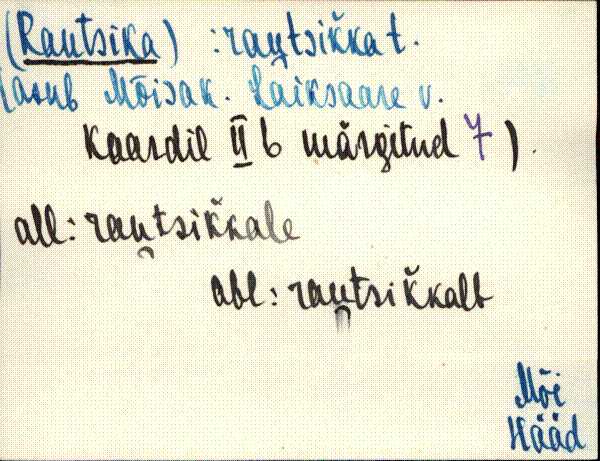 (Rautsika) : rau̯tsikkat.
asub Mõisak. Laiksaare v.
kaardil II b märgitud 7).
all: rau̯tsik̆kale
abl: rau̯tsik̆kalt
Mõi
Hääd